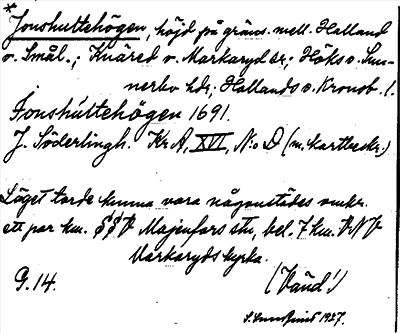 * Jonshultehögen, höjd på gräns. mell. Halland
o. Smål.; Knäred o. Markaryd sr; Höks o. Sun-
nerbo hdr; Hallands o. Kronob. l.
Jonshultehögen 1691.
J. Söderlingh. Kr. A, XVI, N:o D (m. kartbeskr.)
Läget torde kunna vara någonstädes omkr.
ett par km. SSV Majenfors stn, bel. 7 km. VNV
Markaryds kyrka.
G. 14. (Vänd!)
1927.